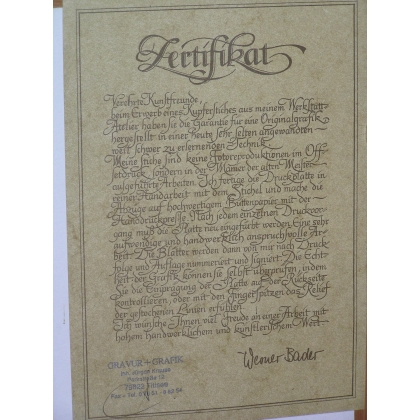 Zertifikat
Verehrte Kunstfreunde,
beim Erwerb eines Kupferstiches aus meinem Werkstatt-
Atelier haben sie die Garantie für eine Originalgrafik
hergestellt in einer heute sehr selten angewandten -
weil schwer zu erlernenden Technik.
Meine Stiche sind keine Fotoreproduktionen im Off-
setdruck, sondern in der Manier der alten Meister
ausgeführte Arbeiten. Ich fertige die Druckplatte in
reiner Handarbeit mit dem Stichel und mache die
Abzüge auf hochwertigem Büttenpapier mit der
Handdruckpresse. Nach jedem einzelnen Druckvor-
gang muß die Platte neu eingefärbt werden. Eine sehr
aufwendige und handwerklich anspruchsvolle Ar-
beit. Die Blätter werden dann von mir nach Druck-
folge und Auflage nummeriert und signiert. Die Echt-
heit der Grafik können sie selbst überprüfen, indem
Sie die Einprägung der Platte auf der Rückseite
kontrollieren, oder mit den Fingerspitzen das Relief
der gestochenen Linien erfühlen.
Ich wünsche Ihnen viel Freude an einer Arbeit mit
hohem handwerklichem und künstlerischem Wert.
Werner Bader
GRAVUR + GRAFIK